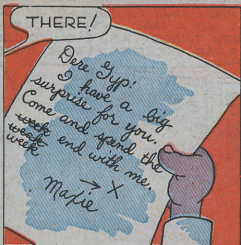 THERE!
Dere Gyp:
I have a big
surprise for you.
Come and spend the
week end with me.
weat
week
→ X
Maxie